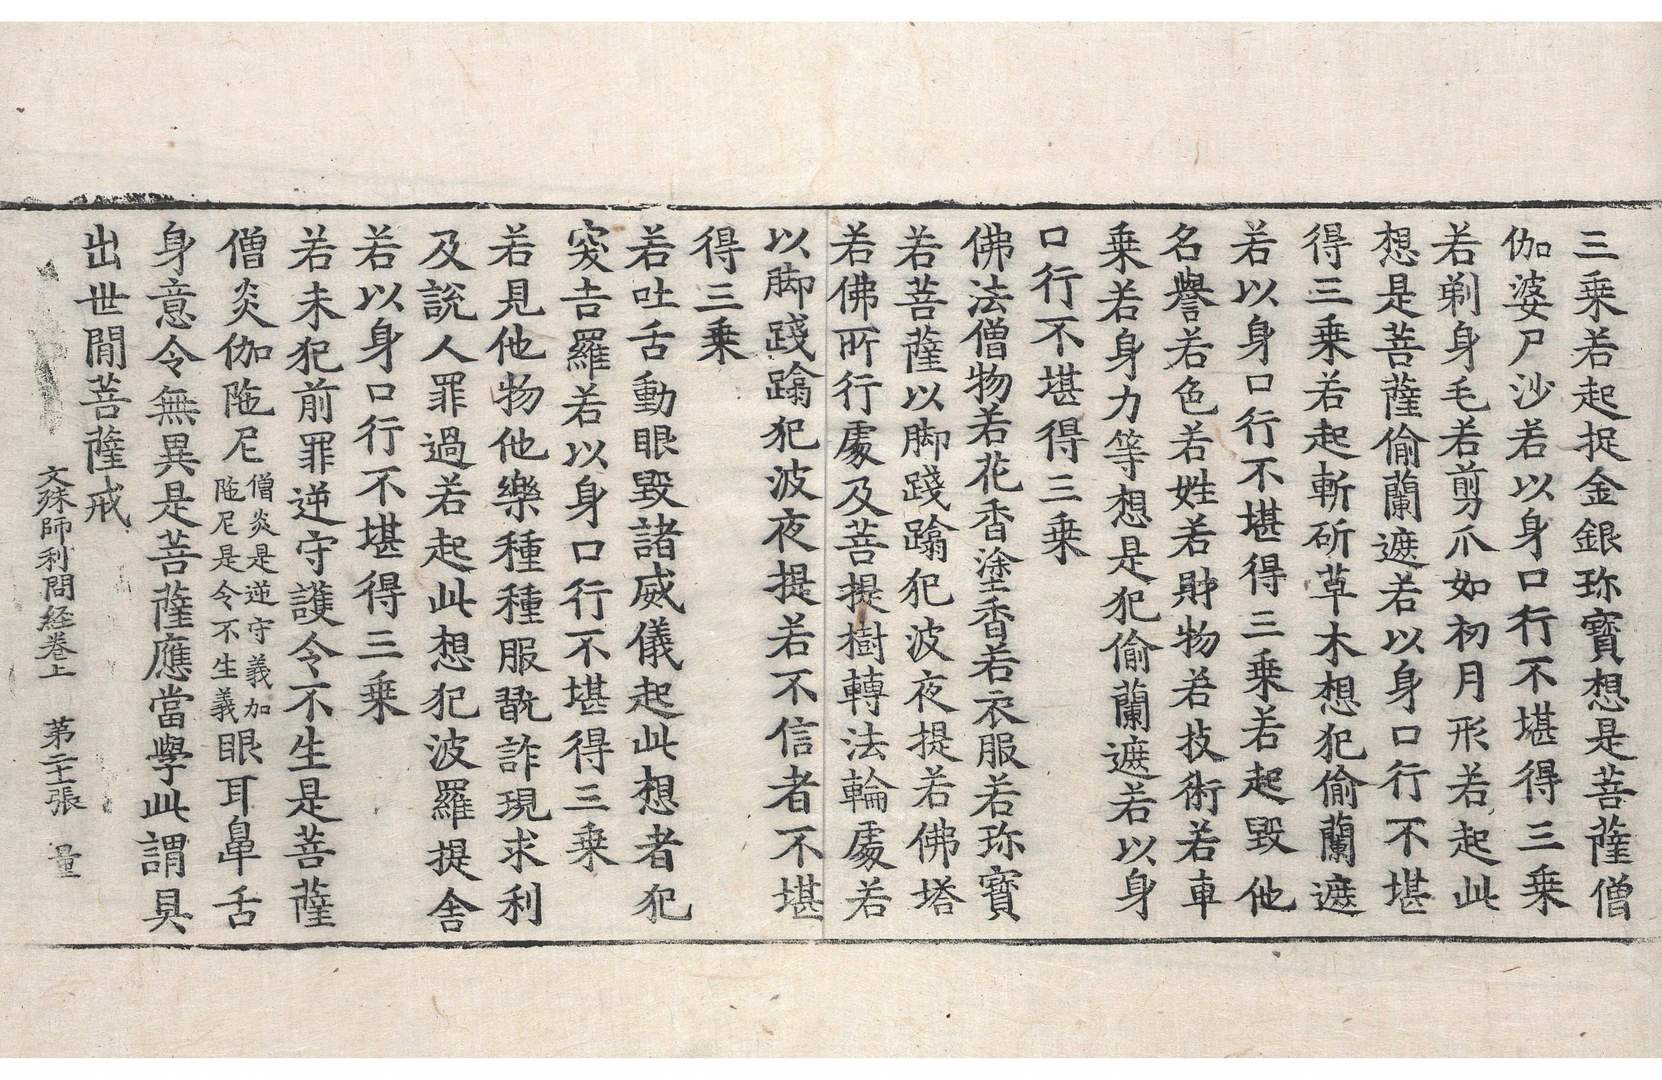 三乘若起捉金銀珎寶想是菩薩僧
伽婆尸沙若以身口行不堪得三乘
若剃身毛若剪爪如初月形若起此
想是菩薩偷蘭遮若以身口行不堪
得三乘若起斬斫草木想犯偷蘭遮
若以身口行不堪得三乘若起毀他
名譽若色若姓若財物若技術若車
乘若身力等想是犯偷蘭遮若以身
口行不堪得三乘
佛法僧物若花香塗香若衣服若珎寶
若菩薩以脚踐蹹犯波夜提若佛塔
若佛所行處及菩提樹轉法輪處若
以脚踐蹹犯波夜提若不信者不堪
得三乘
若吐舌動眼毀諸威儀起此想者犯
突吉羅若以身口行不堪得三乘
若見他物他樂種種服翫詐現求利
及說人罪過若起此想犯波羅提舍
若以身口行不堪得三乘
若未犯前罪逆守護令不生是菩薩
僧炎伽陁尼僧炎是逆守義加陁尼是令不生義眼耳鼻舌
身意令無異是菩薩應當學此謂具
出世閒菩薩戒
文殊師利問経卷上 第二十張 量